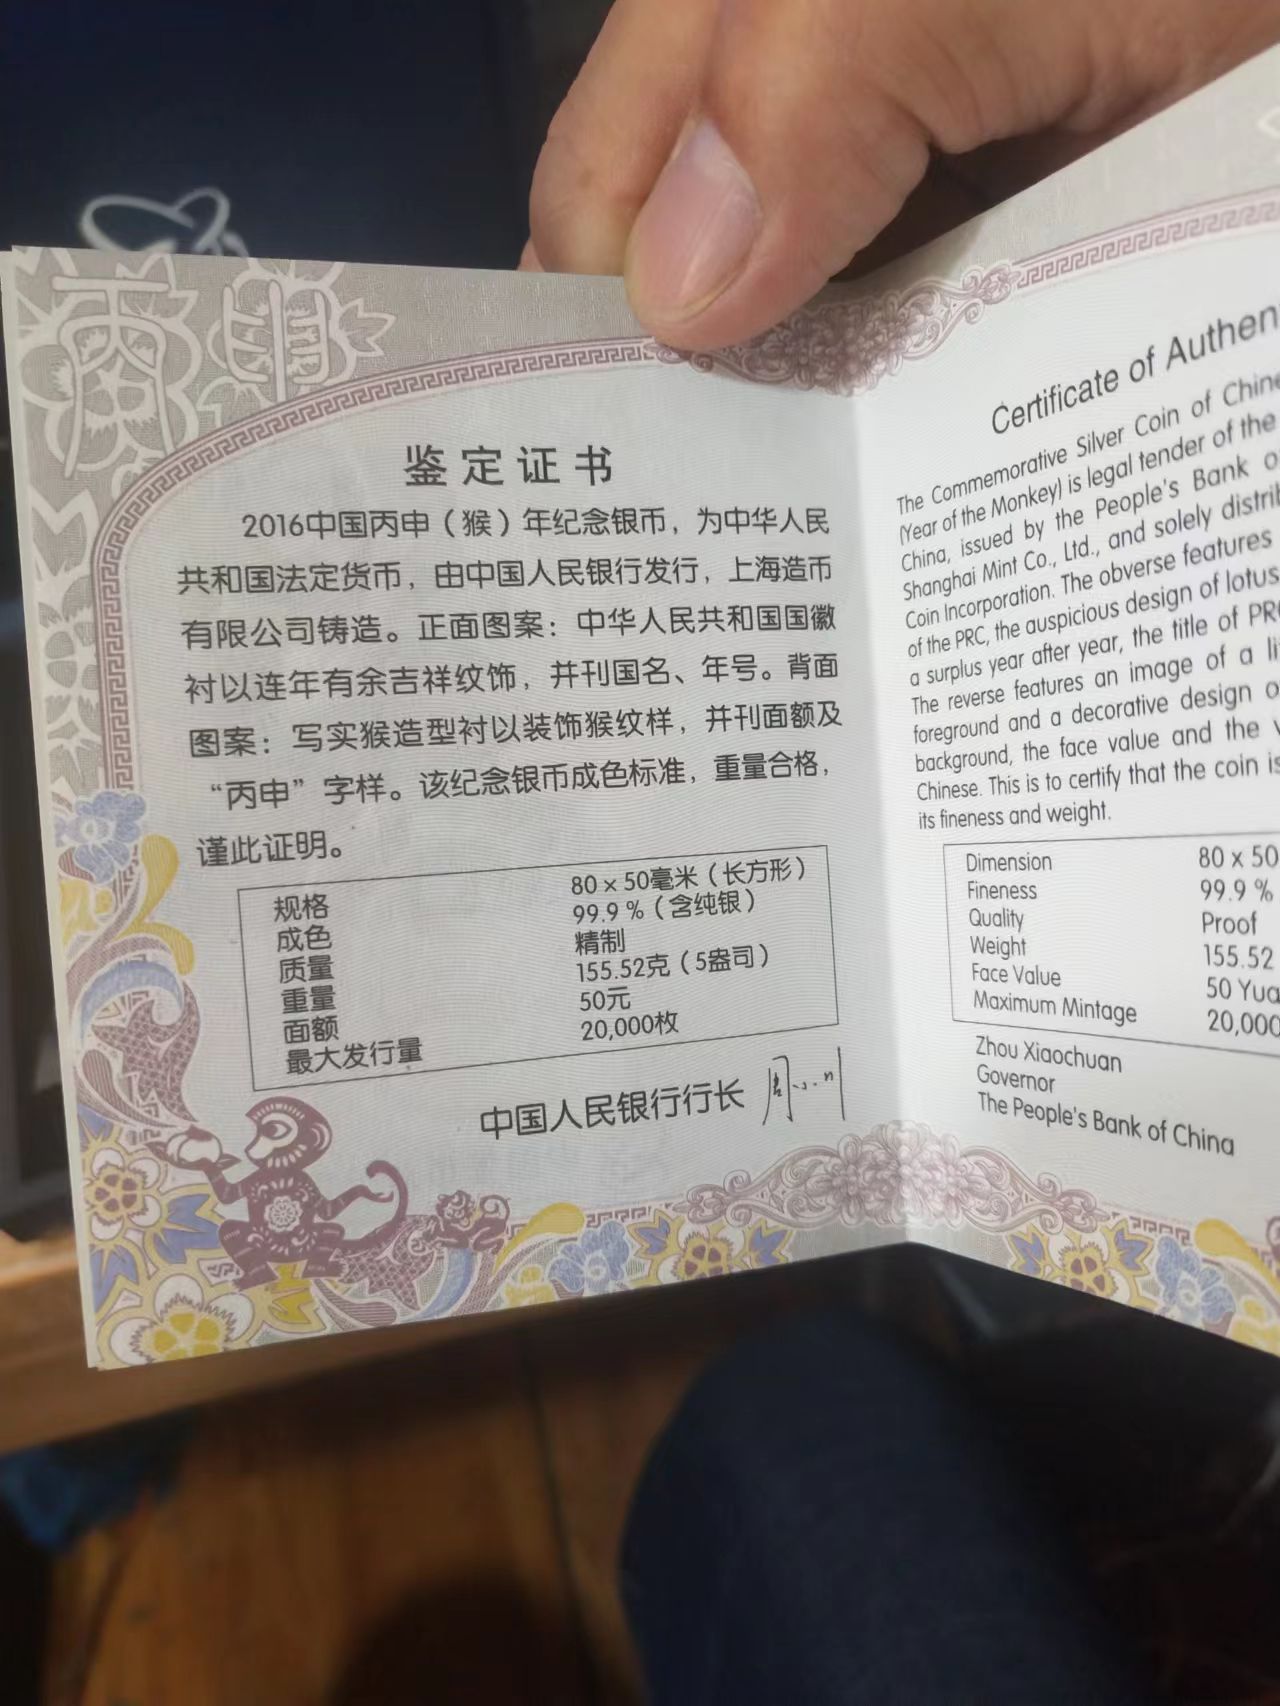 丙申
鉴定证书
2016中国丙申（猴）年纪念银币，为中华人民
共和国法定货币，由中国人民银行发行，上海造币
有限公司铸造。正面图案：中华人民共和国国徽
衬以连年有余吉祥纹饰，并刊国名、年号。背面
图案：写实猴造型衬以装饰猴纹样，并刊面额及
“丙申”字样。该纪念银币成色标准，重量合格，
谨此证明。
规格 80×50毫米（长方形）
成色 99.9％（含纯银）
质量 精制
重量 155.52克（5盎司）
面额 50元
最大发行量 20,000枚
中国人民银行行长
Certificate of Authen
The Commemorative Silver Coin of Chine
(Year of the Monkey) is legal tender of the
China, issued by the People's Bank o
Shanghai Mint Co., Ltd., and solely distri
Coin Incorporation. The obverse features
of the PRC, the auspicious design of lotus
a surplus year after year, the title of PR
The reverse features an image of a li
foreground and a decorative design o
background, the face value and the
Chinese. This is to certify that the coin is
its fineness and weight.
Dimension 80 x 50
Fineness 99.9 %
Quality Proof
Weight 155.52
Face Value 50 Yua
Maximum Mintage 20,000
Zhou Xiaochuan
Governor
The People's Bank of China